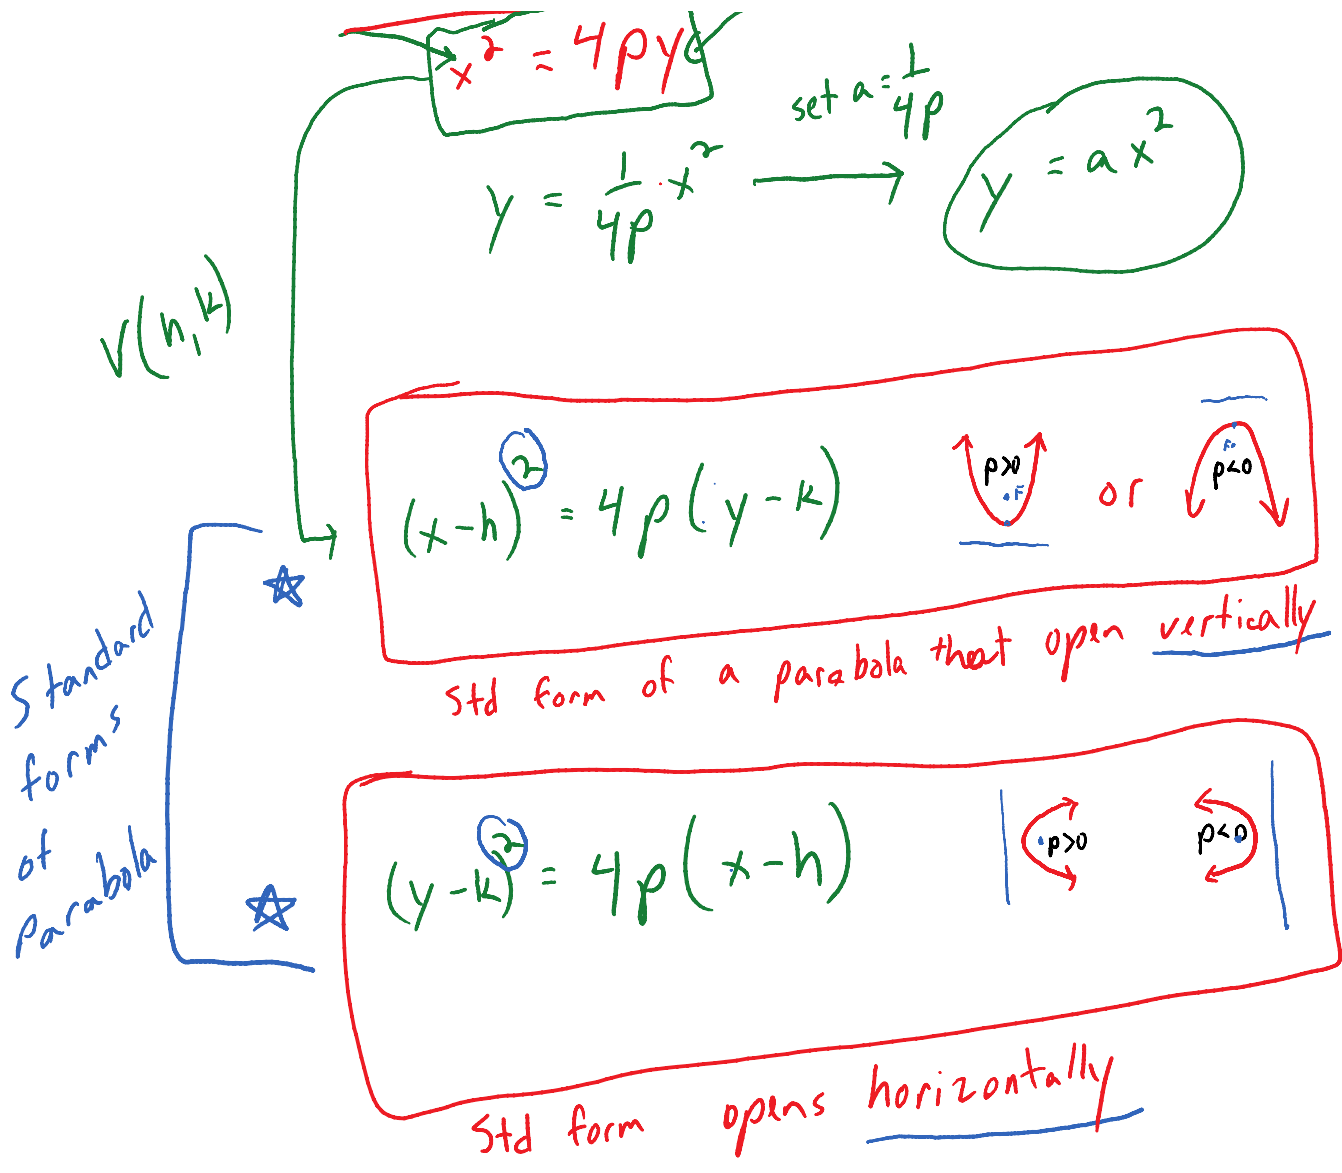 x² = 4py
set a = 1/4p
y = 1/4p · x² → y = ax²
V(h,k)
(x-h)² = 4p(y-k)
p>0
F
or
F
p<0
Std form of a parabola that open vertically
Standard
forms
of
Parabola
(y-k)² = 4p(x-h)
p>0
p<0
Std form opens horizontally